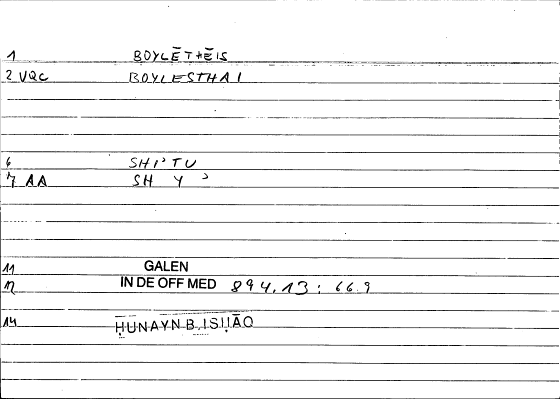 1 BOYLĒTHĒIS
2 VQC BOYLESTHAI
6 SHI'TU
7 AA SH Y ʾ
11 GALEN
12 IN DE OFF MED 894.13 : 66.9
14 ḤUNAYN B. ISḤĀQ